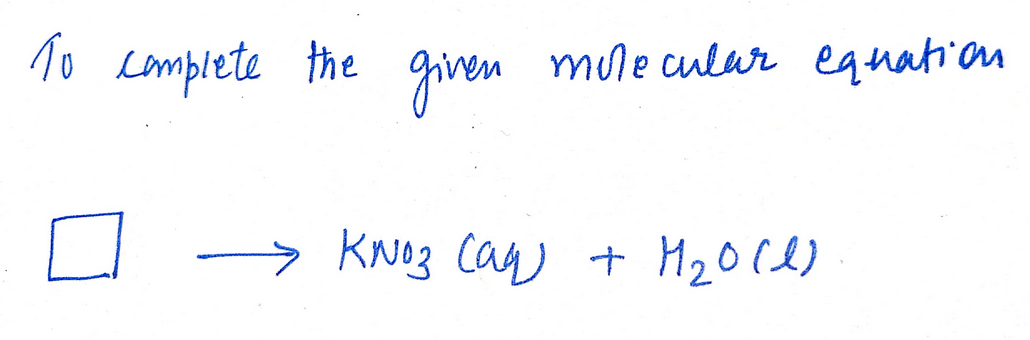 To complete the given molecular equation
□ → KNO3 (aq) + H2O(l)